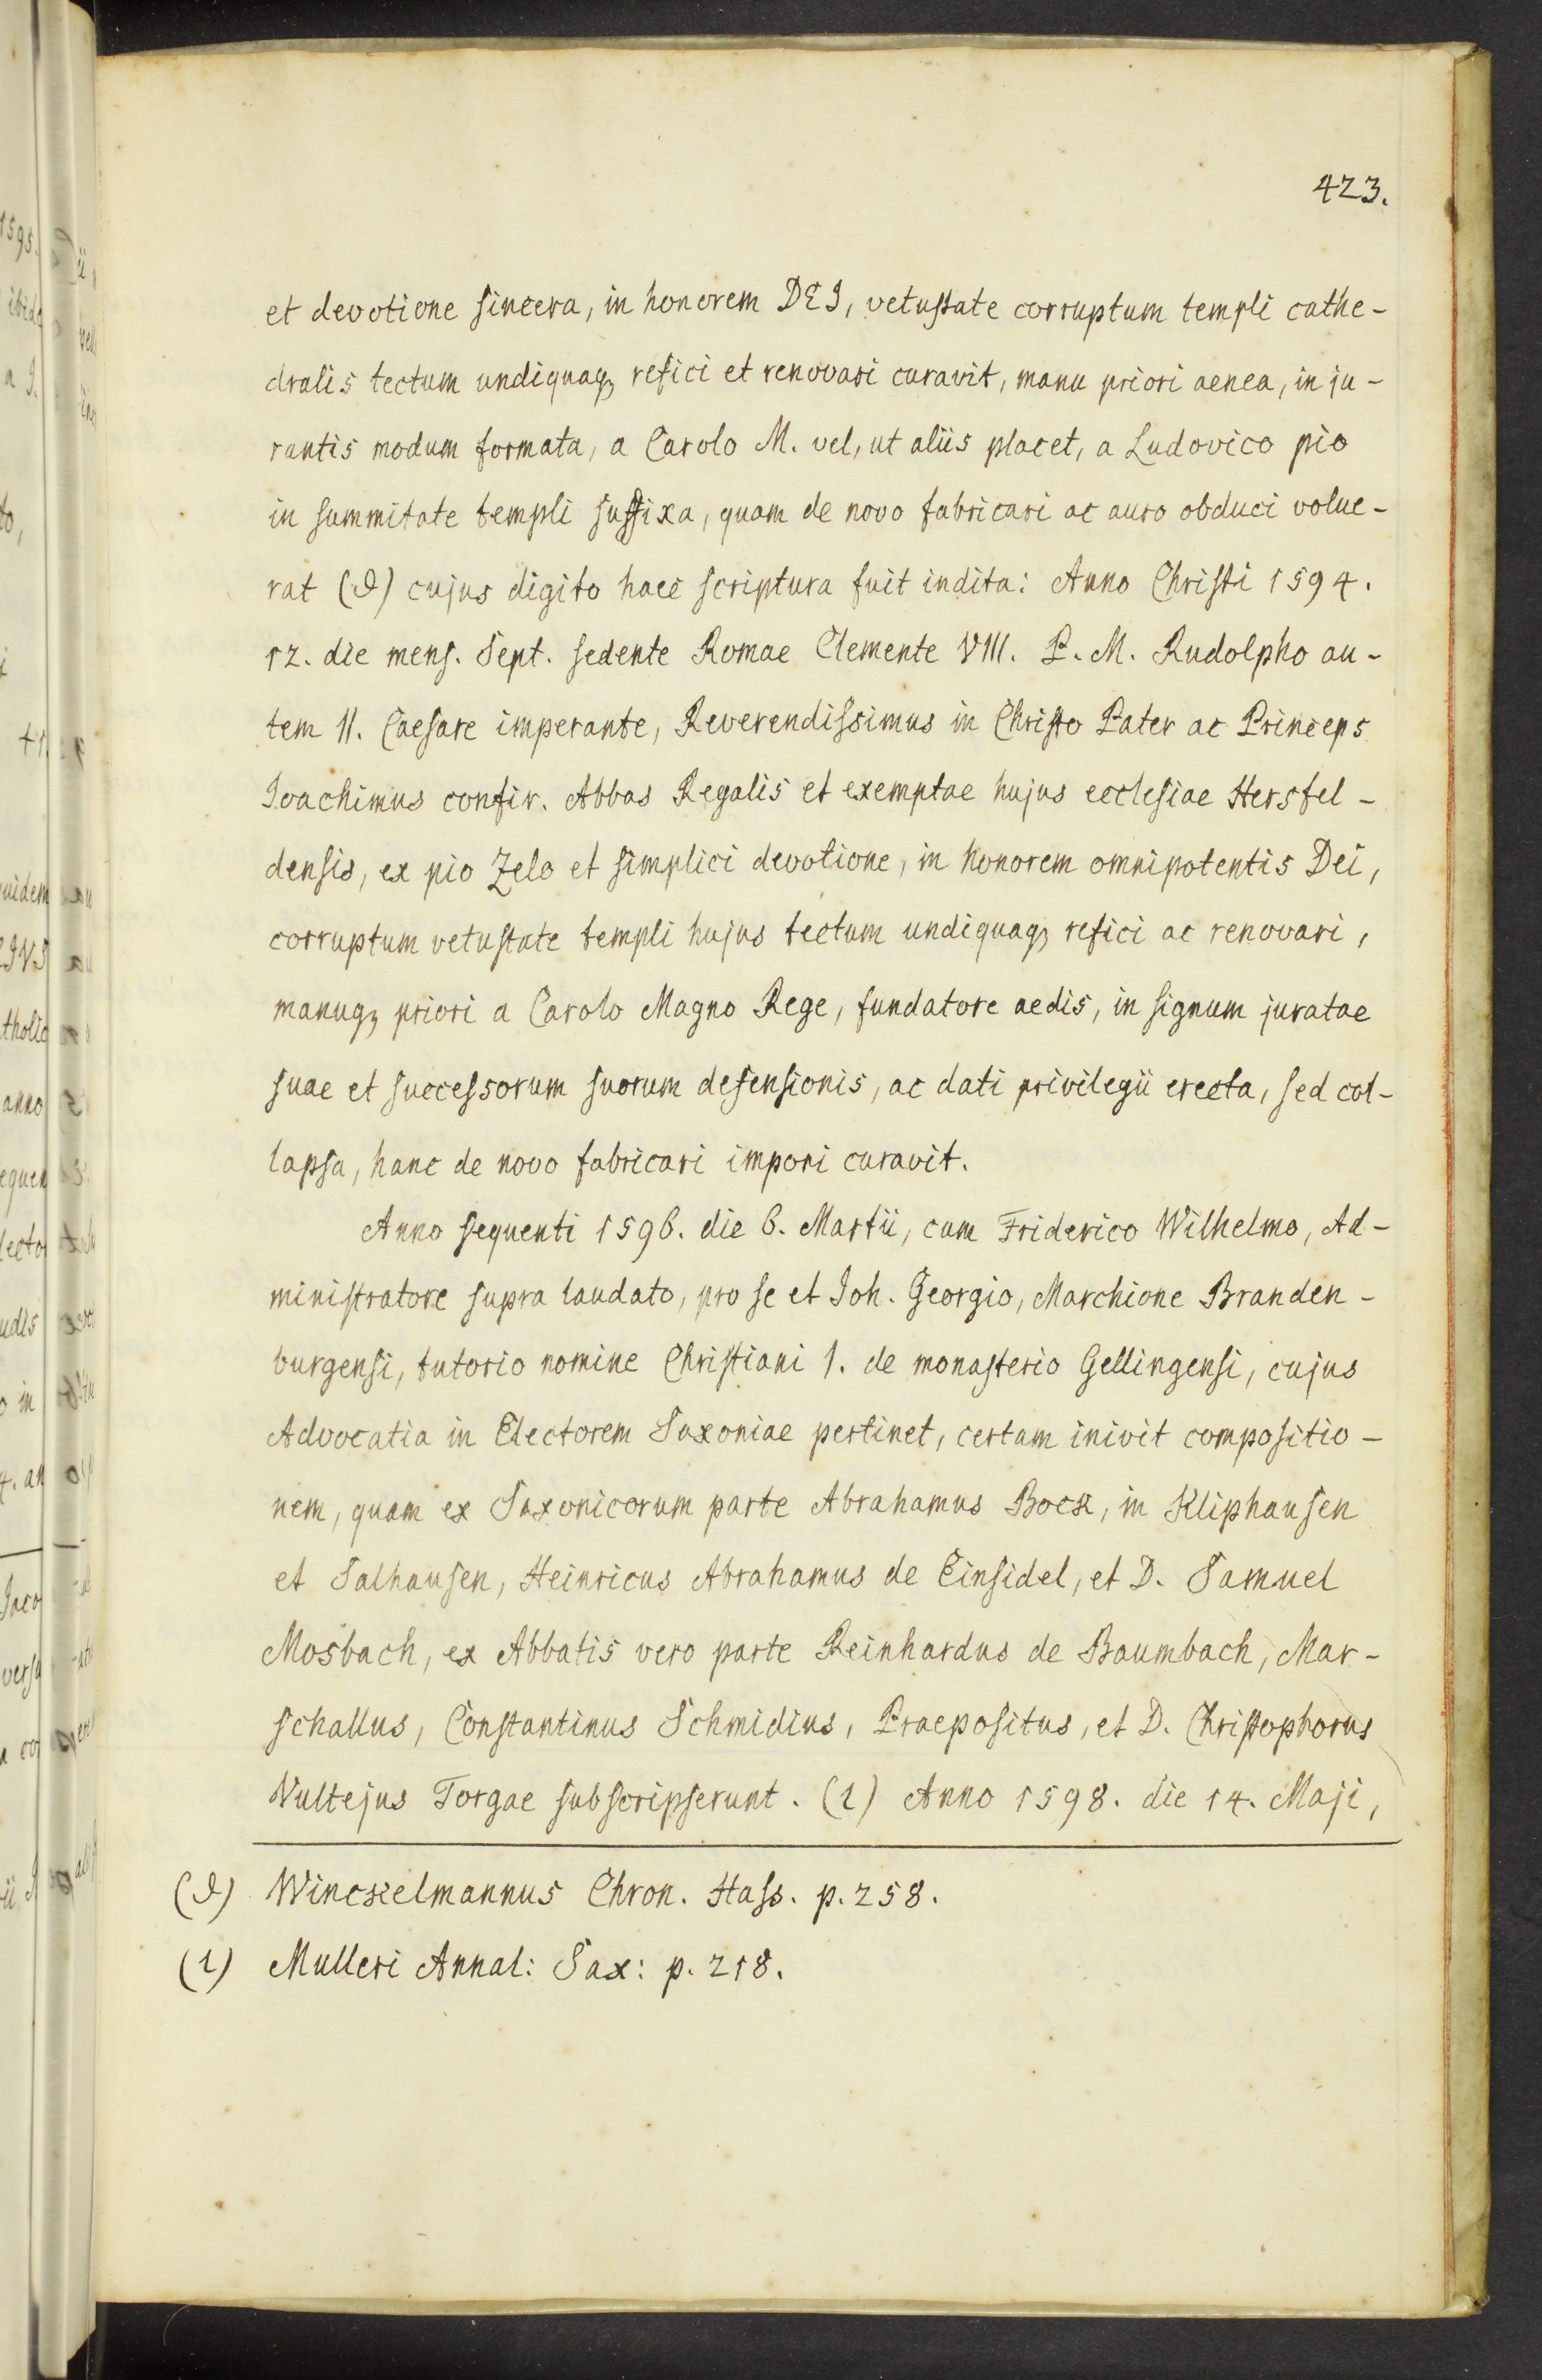 423.
et devotione sincera, in honorem DEI, vetustate corruptum templi cathe-
dralis tectum undiquaq; refici et renovari curavit, manu priori aenea, in ju-
rantis modum formata, a Carolo M. vel, ut aliis placet, a Ludovico pio
in summitate templi suffixa, quam de novo fabricari ac auro obduci volue-
rat (ϑ) cujus digito haec scriptura fuit indita: Anno Christi 1594.
12. die mens. Sept. sedente Romae Clemente VIII. P. M. Rudolpho au-
tem II. Caesare imperante, Reverendissimus in Christo Pater ac Princeps
Joachimus confir. Abbas Regalis et exemptae hujus ecclesiae Hersfel-
densis, ex pio Zelo et simplici devotione, in honorem omnipotentis Dei,
corruptum vetustate templi hujus tectum undiquaq; refici ac renovari,
manuq; priori a Carolo Magno Rege, fundatore aedis, in signum juratae
suae et successorum suorum defensionis, ac dati privilegii erecta, sed col-
lapsa, hanc de novo fabricari imponi curavit.
Anno sequenti 1596. die 6. Martii, cum Friderico Wilhelmo, Ad-
ministratore supra laudato, pro se et Joh. Georgio, Marchione Branden-
burgensi, tutorio nomine Christiani I. de monasterio Gellingensi, cujus
Advocatia in Electorem Saxoniae pertinet, certam inivit compositio-
nem, quam ex Saxonicorum parte Abrahamus Bock, in Kliphausen
et Salhausen, Heinricus Abrahamus de Einsidel, et D. Samuel
Mosbach, ex Abbatis vero parte Reinhardus de Baumbach, Mar-
schallus, Constantinus Schmidius, Praepositus, et D. Christophorus
Vultejus Torgae subscripserunt. (ι) Anno 1598. die 14. Maji,
(ϑ) Winckelmannus Chron. Hass. p. 258.
(ι) Mulleri Annal: Sax: p. 218.